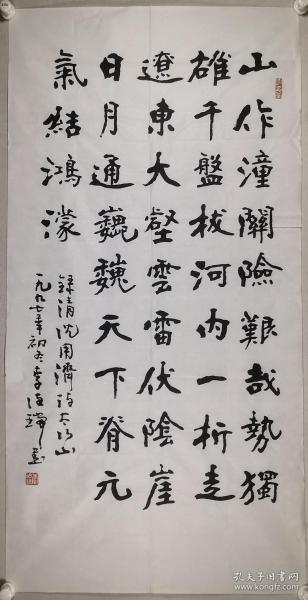 山作潼關險艱哉勢獨
雄千盤拔河內一析走
遼東大壑雲雷伏陰崖
日月通巍巍天下脊元
氣結鴻濛
錄清沈用濟詩太行山
一九九七年初冬李
孔夫子旧书网